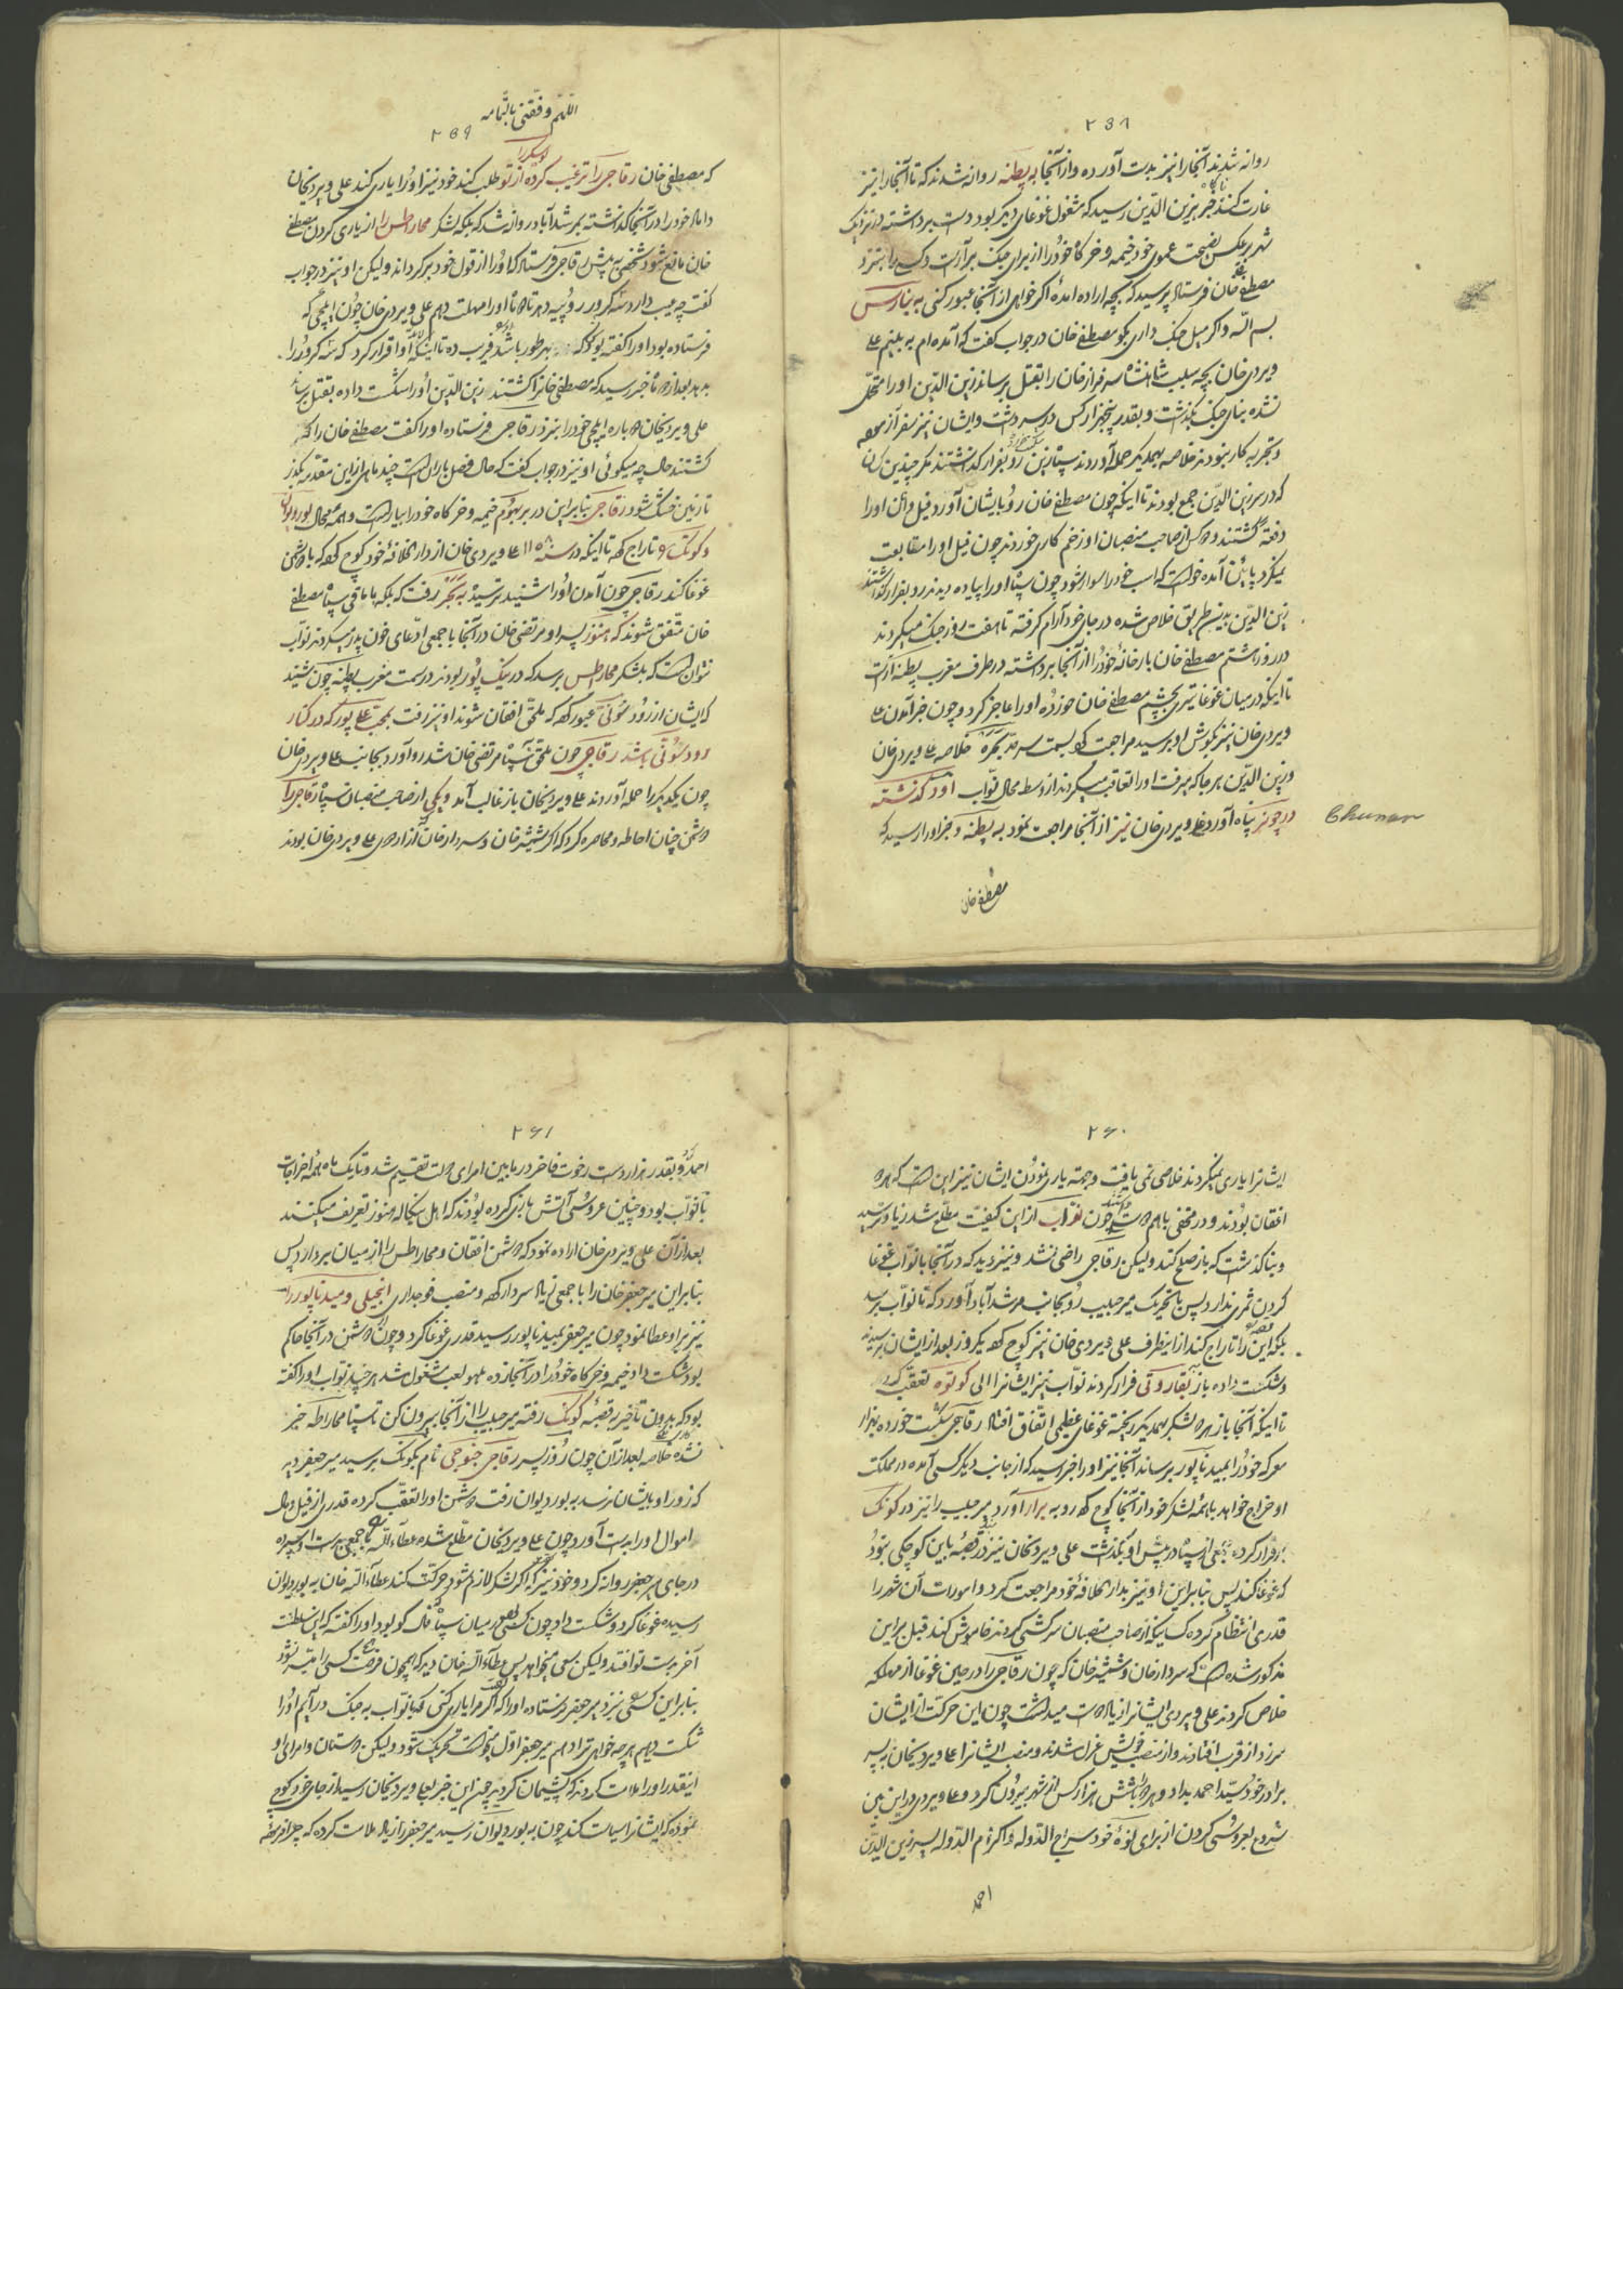 ۲۵۸
روانه شدند آنجا را نیز بدست آورده و از آنجا به پطنه روانه شدند که تا آنجا را نیز
غارت کنند خبر بزین الدین رسید که مشغول غوغای دیگر بود دست برداشته در نزدیک
شهر برعکس نصیحت عموی خود خیمه و خرگاه خود را از برای جنک برآراست و کسی را بنزد
مصطفی خان فرستاد پرسید که بچه اراده آمدهٔ اکر خواهی از اینجا عبور کنی به بنارس
بسم الله و اکر میل جنک داری بکو مصطفی خان در جواب کفت که آمده ام به بینم علی
ویردی خان بچه سبب شاهنشاه سرفراز خان را بقتل برساند زین الدین او را متحمل
نشده بنای جنک بگذاشت و بقدر پنجهزار کس در سر داشت و ایشان نیز سفر آزموده
و تجربه کار نبودند خلاصه بهمدیکر حمله آوردند سپاه زین رو بفرار کذاشتند مکر چندین کسان
که در سر زین الدین جمع بودند تا اینکه چون مصطفی خان رو بایشان آورد فیل وان او را
دفعةً کشتند و دو کس از صاحب منصبان او زخم کاری خوردند چون فیل او را متابعت
نمیکرد پائین آمده خواست که اسب خود را سوار شود چون سپاه او را پیاده دیدند رو بفرار گذاشتند
زین الدین بدینطریق خلاص شده در جای خود آرام کرفته تا هفت روز جنک میکردند
در روز هشتم مصطفی خان بارخانهٔ خود را از آنجا برداشته در طرف مغرب پطنه آراست
تا اینکه در میان غوغا تیری بچشم مصطفی خان خورده او را عاجز کرد و چون خبر آمدن علی
ویردی خان نیز بکوش او برسید مراجعت کرد بسمت سرحد بکره خلاصه علی ویردی خان
و زین الدین هر جا که میرفت او را تعاقب میکردند از وسط محال نواب اود کذشته
در چونر پناه آورد علی ویردی خان نیز از آنجا مراجعت نمود به پطنه و خبر او را رسید که
Chunar
مصطفی خان
اللهم وفقنی باتمامه
۲۵۹
که مصطفی خان رقاجی را ترغیب کرده از تو طلب کند خود نیز او را یاری کند علی ویردیخان
داماد خود را در آنجا کذاشته بمرشدآباد روانه شد که بلکه لشکر محاراطس را از یاری کردن مصطفی
خان مانع شود شخصی به پیش رقاجی فرستاد که او را از قول خود برگرداند ولیکن او نیز در جواب
کفت چه عیب دارد سه کرور روپیه دهد تا دو ماه او را مهلت دهم علی ویردی خان چون ایلچی که
فرستاده بود او را کفته بود که بهر طور باشد فریب ده تا اینکه او اقرار کرد که سه کرور را
بدهد بعد از دو ماه خبر رسید که مصطفی خان را کشتند زین الدین او را شکست داده بقتل رساند
علی ویردیخان دوباره ایلچی خود را بنزد رقاجی فرستاده او را کفت مصطفی خان را که
کشتند حالا چه میکوئی او نیز در جواب کفت که حال فصل باران است چند ماهی از این مقدمه بگذرد
تا زمین خشک شود رقاجی بنابراین در بربهوم خیمه و خرگاه خود را بیاراست و همه محال بوردوان
و کونک را تاراج کرد تا اینکه در سنه ۱۱۵۸ علی ویردی خان از دارالخلافهٔ خود کوچ کرد که با دشمن
غوغا کند رقاجی چون آمدن او را شنید بترسید به بکره رفت که بلکه با باقی سپاه مصطفی
خان متفق شوند که هنوز پسر او مرتضی خان در آنجا با جمعی ادعای خون پدر میکردند نواب
نتوانست که بلشکر محاراطس برسد که در نیک پور بودند در سمت مغرب پطنه چون شنید
که ایشان از رود سونی عبور کرد که ملحق افغان شوند او نیز رفت بمحب علی پور که در کنار
رود سونی باشد رقاجی چون ملحق سپاه مرتضی خان شد رو آورد بجانب علی ویردی خان
چون یکدیکر را حمله آوردند علی ویردیخان باز غالب آمد و یکی از صاحب منصبان سپاه رقاجی را
دشمن چنان احاطه و محاصره کرد که اکر شمشیر خان و سردار خان که از امرای علی ویردی خان بودند
۲۶۰
ایشانرا یاری نمیکردند خلاصی نمی یافت و جهة یاری نمودن ایشان نیز این است که هر دو
افغان بودند و در مخفی باهم دوست چون نواب از این کیفیت مطلع شد زیاد ترسید
و بنا کذاشت که باز صلح کند ولیکن رقاجی راضی نشد و نیز دید که در آنجا با نواب غوغا
کردن ثمری ندارد پس با تحریک میر حبیب رو بجانب مرشدآباد آورد که تا نواب برسد
بلکه این را تاراج کند از اینطرف علی ویردی خان نیز کوچ کرد یکروز بعد از ایشان برسید
و شکست داده باز بقاروتی فرار کردند نواب نیز ایشانرا الی کوتوه تعقب کرد
تا اینکه آنجا باز هر دو لشکر بهمدیکر ریخته غوغای عظیمی اتفاق افتاد رقاجی شکست خورده بهزار
معرکه خود را بمیدناپور برساند آنجا نیز او را خبر رسید که از جانب دیکر کسی آمده در مملکت
او خراج خواهد با همه لشکر خود از آنجا کوچ کرد رو به برار آورد میر حبیب را نیز در کونک
برقرار کرده جمعی از سپاه در پیش او بگذاشت علی ویردیخان نیز در قصبهٔ باین کوچکی نبود
که غوغا کند پس بنابراین او نیز بدارالخلافهٔ خود مراجعت کرد و امورات آن شهر را
قدری انتظام کرده کسانیکه از صاحب منصبان سرکشی کردند خاموش کند قبل بر این
مذکور شده است که سردار خان و شمشیر خان که چون رقاجی را در حین غوغا از مهلکه
خلاص کردند علی ویردی ایشانرا زیاد دوست میداشت چون این حرکت از ایشان
سرزد از قرب افتادند و از منصب خویش عزل شدند و منصب ایشانرا علی ویردیخان به پسر
برادر خود سید احمد بداد و هر دو را با شش هزار کس از شهر بیرون کرد و علی ویردی در این بین
شروع بعروسی کردن از برای نوهٔ خود سراج الدوله و اکرام الدوله پسر زین الدین
احمد
۲۶۱
احمد و بقدر هزار دست رخوت فاخر در مابین امرای دولت تقسیم شد و تا یک ماه همهٔ اخراجات
با نواب بود و چنین عروسی آتش بازی کرده بودند که اهل بنکاله هنوز تعریف میکنند
بعد از آن علی ویردی خان اراده نمود که دشمن افغان و محاراطس را از میان بردارد پس
بنابراین میر جعفر خان را با جمعی زیاد سردار کرد و منصب فوجداری انجیلی و میدناپور را
نیز بر او عطا نمود چون میر جعفر بمیدناپور رسید قدری غوغا کرد و چون دشمن در آنجا حاکم
بود شکست داد خیمه و خرگاه خود را در آنجا زده بلهو لعب مشغول شد هر چند نواب او را کفته
بود که بدون تأخیر به قصبهٔ کونک رفته میر حبیب را از آنجا بیرون کن تا سپاه محاراطه خبر
نشده خلاصه بعد از آن چون روز پسر رقاجی جنوجی نام بکونک برسید میر جعفر دید
که زور او بایشان نرسد به بوردیوان رفت دشمن او را تعقب کرده قدری از فیل و مال
اموال او را بدست آورد چون علی ویردیخان مطلع شده عطاءالله با جمعی سپرده
در جای میر جعفر روانه کرد و خود نیز که اکر لشکر لازم شود حرکت کند عطاءالله خان به بوردیوان
رسیده غوغا کرد و شکست داد چون کسی در میان سپاه فال گو بود او را کفته که این سلطنت
آخر بدست تو افتد ولیکن سعی میخواهد پس عطاءالله خان دید که همچون فرصت کسی را میسر نشود
بنابراین کسی نزد میر جعفر فرستاده او را که اکر مرا یاری کنی که با نواب به جنک درآئیم او را
شکست دهیم هر چه خواهی ترا دهم میر جعفر اول میخواست که شریک شود ولیکن دوستان و امرای او
اینقدر او را ملامت کردند که پشیمان گردید چون این خبر بعلی ویردیخان رسید از جای خود کوچ
نموده که ایشانرا سیاست کند چون به بوردیوان رسید میر جعفر را زیاد ملامت کرده که چرا فریفته